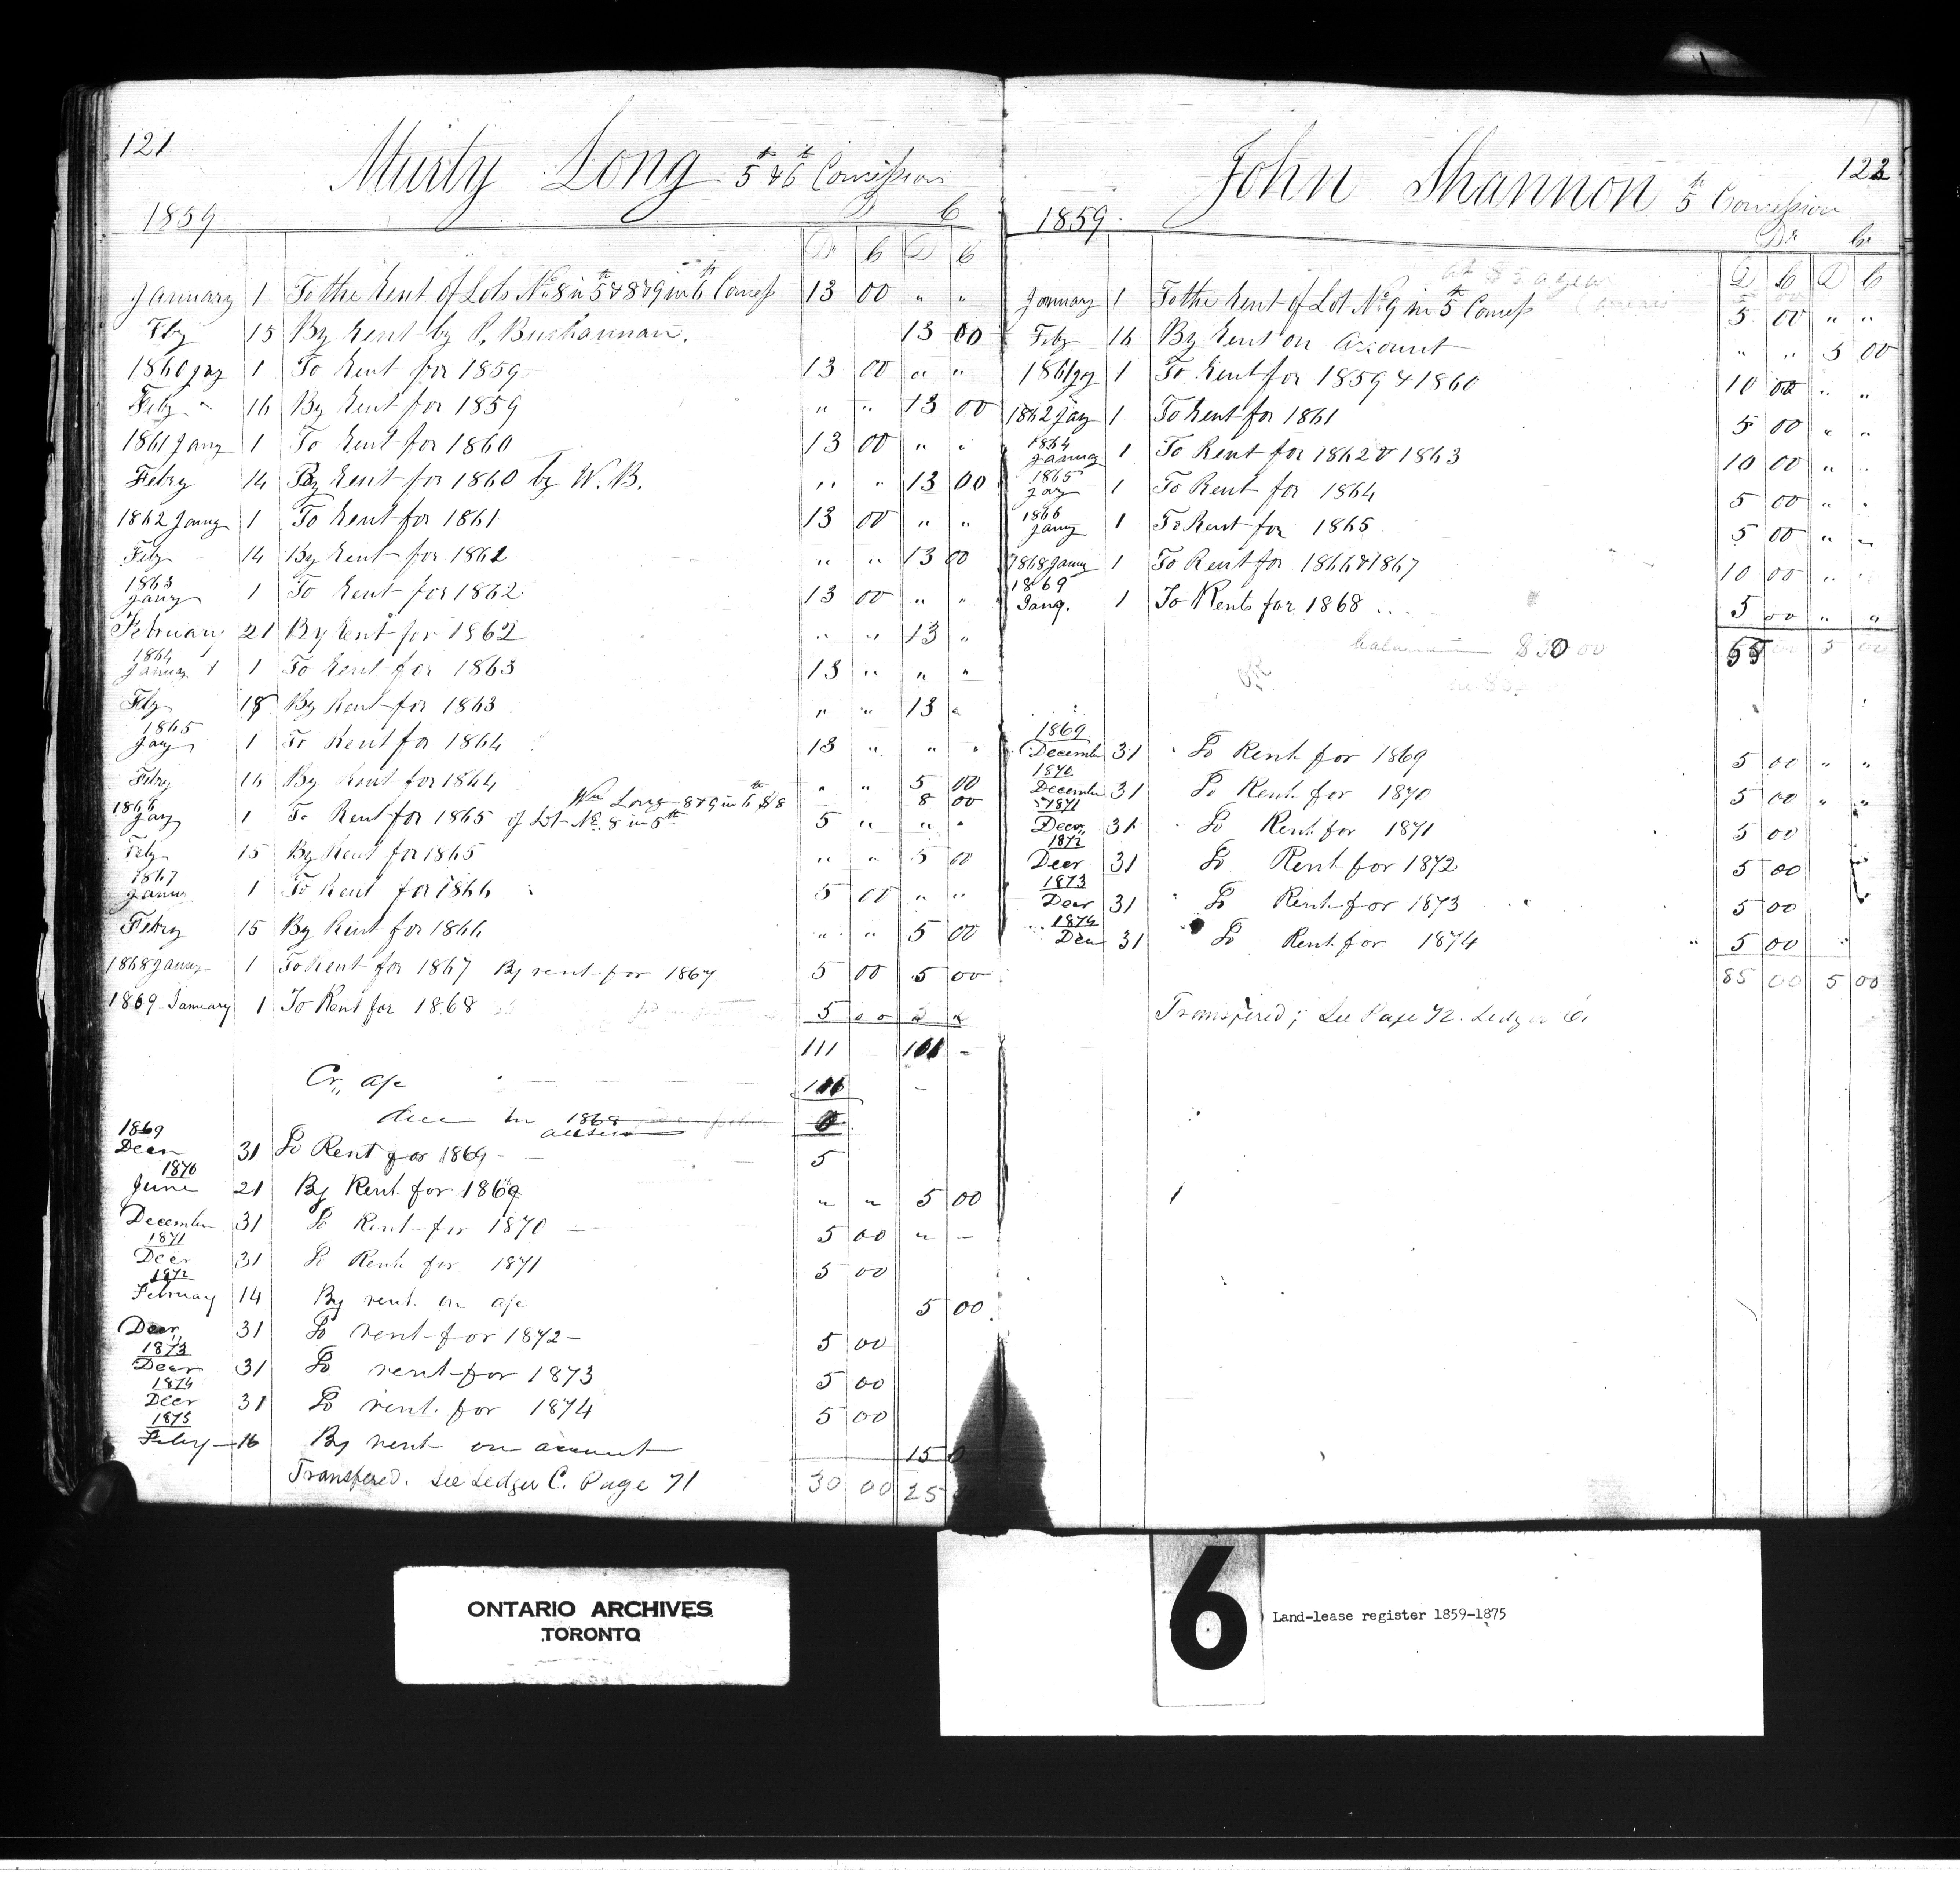 121
Murty Long 5th & 6th Concession
1859
D C
Dr C D C
January 1 To the Rent of Lots No. 8 in 5th & 8 & 9 in 6th Concess 13 00 " "
Feby 15 By Rent by P. Buchannan. 13 00
1860 Jay 1 To Rent for 1859 13 00 " "
Feby " 16 By Rent for 1859 " " 13 00
1861 Jany 1 To Rent for 1860 13 00 " "
Febry 14 By Rent for 1860 by W. B. " " 13 00
1862 Jany 1 To Rent for 1861 13 00 " "
Feby 14 By Rent for 1862 " " 13 00
1863
Jany 1 To Rent for 1862 13 00 " "
February 21 By Rent for 1862 " " 13 "
1864
January 1 To Rent for 1863 13 " " "
Feby 18 By Rent for 1863 " " 13 "
1865
Jay 1 To Rent for 1864 13 " " "
Febry 16 By Rent for 1864 " " 5 00
Wm Long 8 & 9 in 6th $8 8 00
1866
Jay 1 To Rent for 1865 of Lot No. 8 in 5th 5 " " "
Feby 15 By Rent for 1865 " " 5 00
1867
Jany 1 To Rent for 1866 5 00 " "
Febry 15 By Rent for 1866 " " 5 00
1868 January 1 To Rent for 1867 By rent for 1867 5 00 5 00
1869 January 1 To Rent for 1868 5 00
111
Cr, a/c
1868
1869
Decr 31 To Rent for 1869 5
1870
June 21 By Rent for 1869 " " 5 00
December 31 To Rent for 1870 5 00 " -
1871
Decr 31 To Rent for 1871 5 00
1872
February 14 By rent on a/c 5 00
Decr, 31 To rent for 1872 5 00
1873
Decr 31 To rent for 1873 5 00
1874
Decr 31 To rent for 1874 5 00
1875
Feby 16 By rent on account 15
Transfered. See Ledger C. Page 71 30 00 25
122
John Shannon 5th Concession
1859.
Dr Cr
D C D C
at $5 a year
January 1 To the Rent of Lot No. 9 in 5th Concess 5 00 " "
Feby 16 By Rent on account " " 5 00
1861 Jay 1 To Rent for 1859 & 1860 10 00 " "
1862 Jay 1 To Rent for 1861 5 00 " "
1864
January 1 To Rent for 1862 & 1863 10 00 " "
1865
Jay 1 To Rent for 1864 5 00 " "
1866
Jany 1 To Rent for 1865 5 00 " "
1868 Jany 1 To Rent for 1866 & 1867 10 00 " "
1869
Jany. 1 To Rents for 1868 5 00 " "
balance 55 00 5 00
1869
December 31 To Rent for 1869 5 00 " "
1870
December 31 To Rent for 1870 5 00 " "
1871
Decr, 31 To Rent for 1871 5 00
1872
Decr 31 To Rent for 1872 5 00
1873
Decr 31 To Rent for 1873 5 00
1874
Decr 31 To Rent for 1874 5 00
85 00 5 00
Transfered; See Page 72. Ledger C.
ONTARIO ARCHIVES
TORONTO
6
Land-lease register 1859-1875